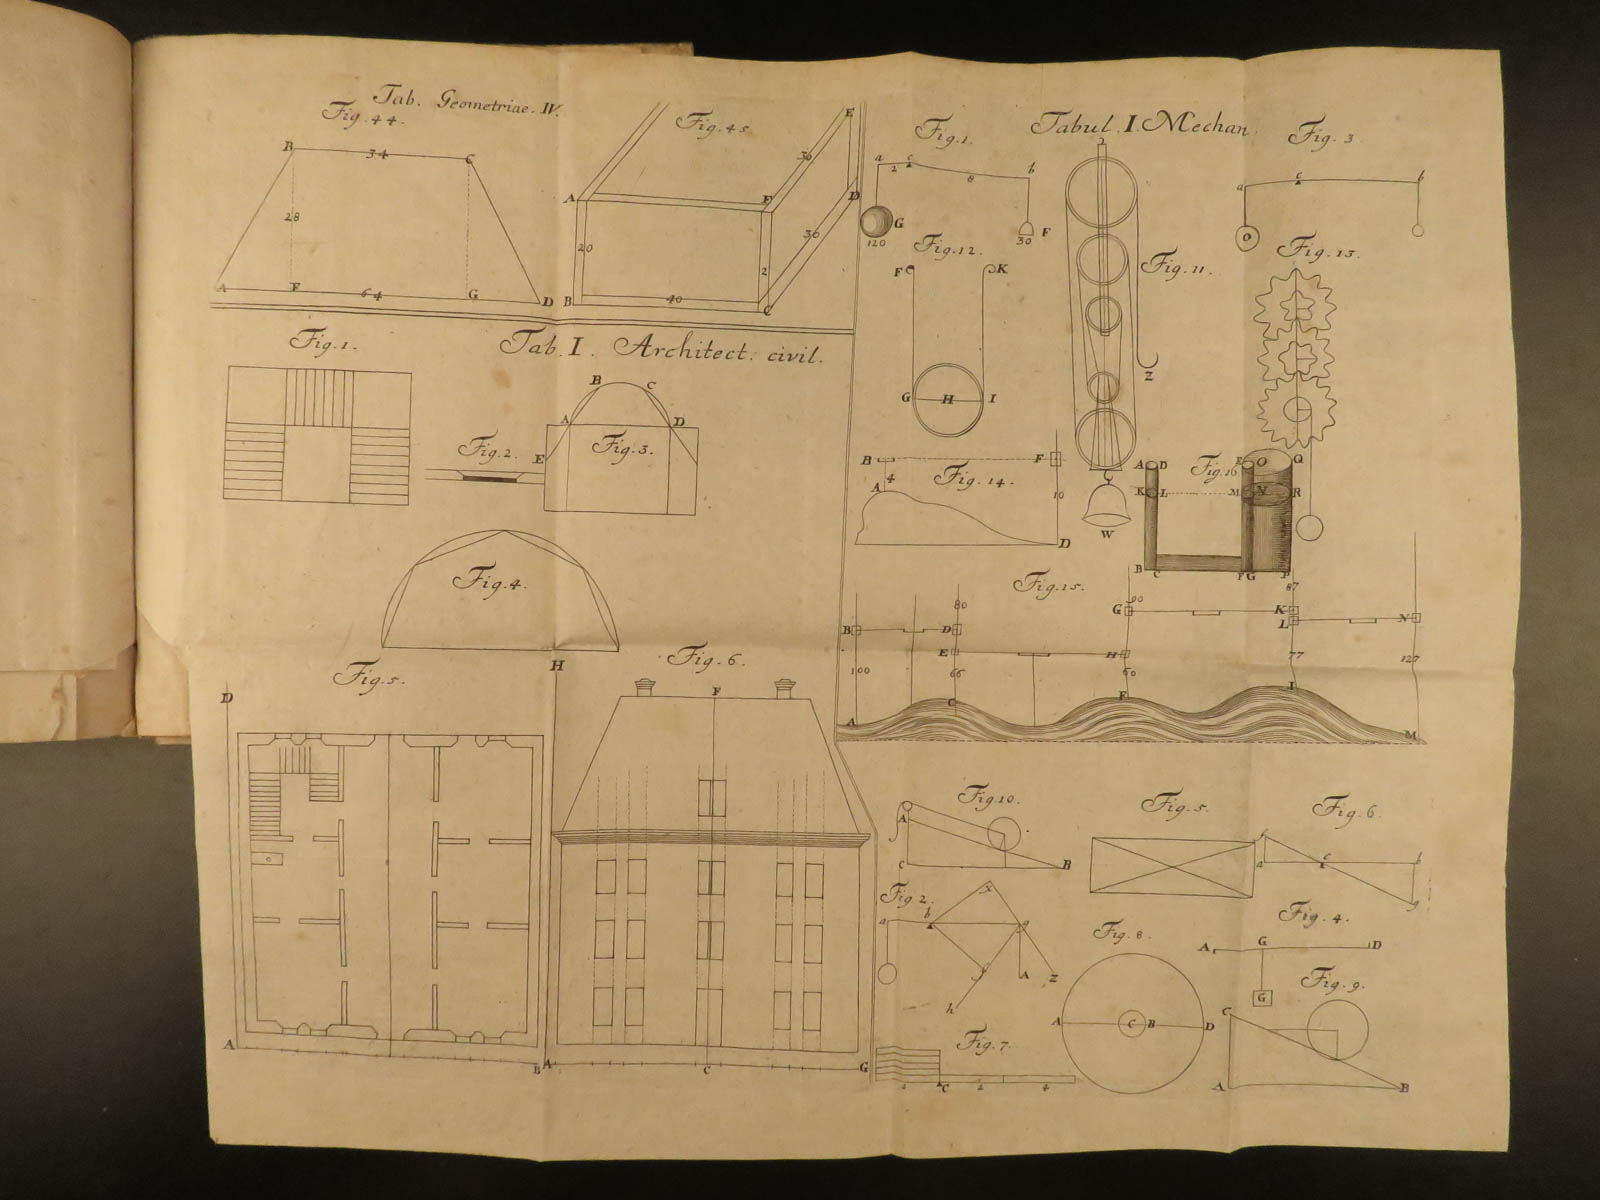 Tab. Geometriae. IV.
Fig. 44.
B 34 C
28
A F 64 G D
Fig. 45
E
30
A F D
20 30
2
B 40 C
Tab. I. Architect. civil.
Fig. 1.
Fig. 2.
B C
A D
E Fig. 3.
Fig. 4.
H
Fig. 5.
D
A B
Fig. 6.
F
A C G
Tabul. I. Mechan.
Fig. 1.
a c b
2 8
G F
120 30
Fig. 3
a c b
Fig. 12.
F K
G H I
Fig. 11.
Z
W
Fig. 13.
Fig. 14.
B F
4
A 10
D
Fig. 16
A D E O Q
K L M N R
B C F G P
Fig. 15.
80 90 87
B D G K
L N
E H
100 66 60 77 127
A C F I M
Fig. 10.
A
C B
Fig. 5.
Fig. 6.
f
a c b
g
Fig 2.
x
a b g
f A z
h
Fig. 8.
A C B D
Fig. 4.
A G D
G
Fig. 9.
C
A B
Fig. 7.
C 2 4